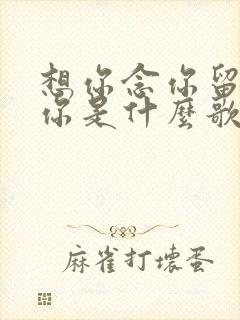 想你念你留
你是什麼歌
麻雀打壞蛋